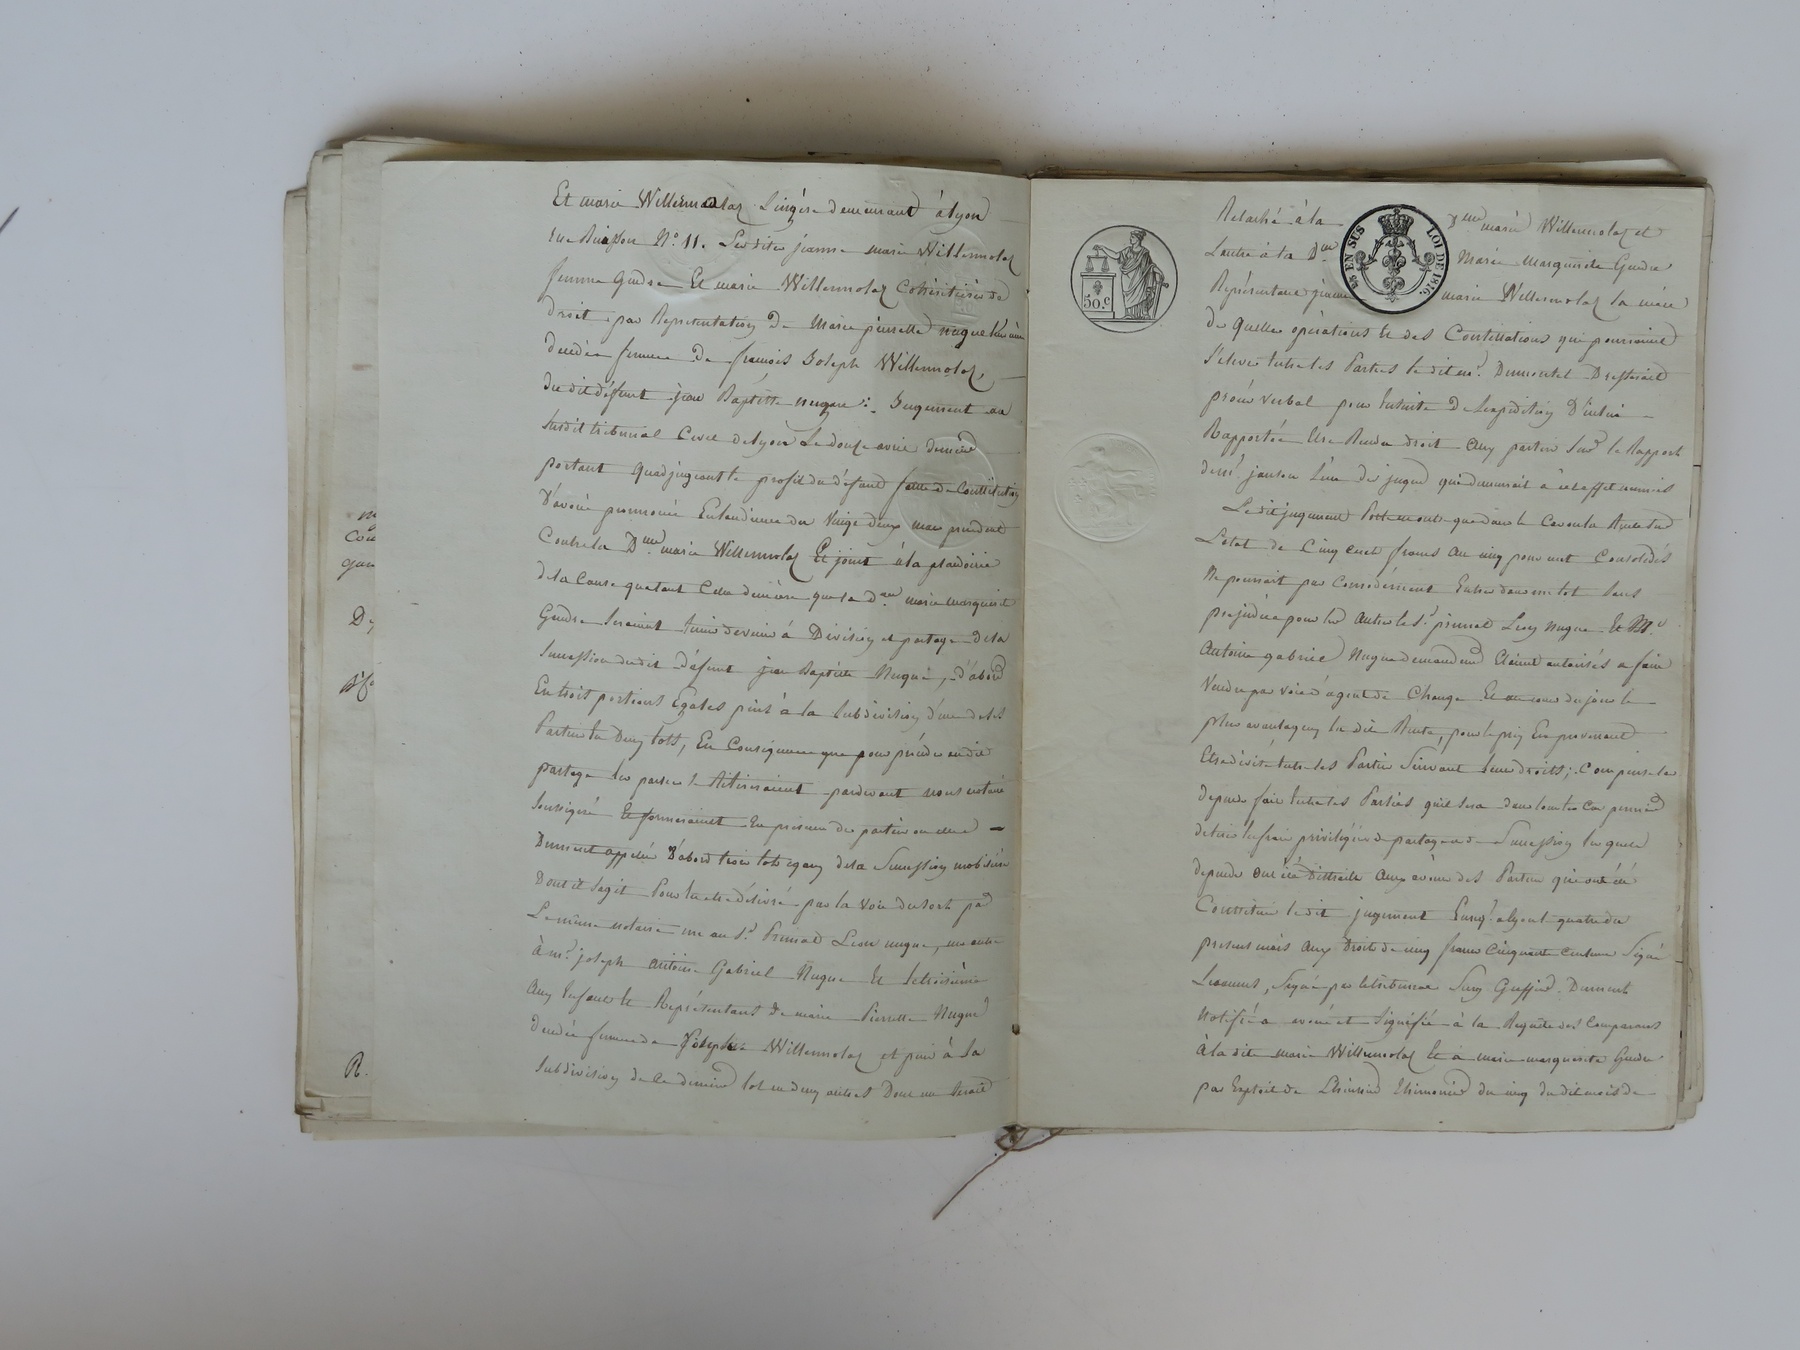 Et marie Willermolaz Lingère demeurant à Lyon
rue Buisson N.° 11. Les dites jeanne marie Willermolaz
femme Gudre Et marie Willermolaz Cohéritières de
droit par Représentation De Marie pierrette nugue leur mère
décédée femme De françois Joseph Willermolaz
du dit défunt jean Baptiste nugue : Jugement au
susdit tribunal Civil de Lyon Le douze avril dernier
portant quadjugeant le profit du défaut faute de Constitution
D'avoué prononcé En laudience du Vingt deux mars précédent
Contre la D.lle marie Willermolaz Et joint à la plaidoirie
de la Cause quetant Cette dernière que la d.lle marie marguerite
Gudre seraient tenues de venir à Division et partage de la
Succession du dit défunt jean Baptiste Nugue, d'abord
En trois portions Egales puis à la Subdivision d'une de ses
Parties En Deux lots, En Conséquence que pour procéder au dit
partage les parties se Retireraient pardevant nous notaire
Soussigné Et formeraient En présence des parties ou elles
Dument appelées D'abord trois lots egaux de la Succession mobilière
Dont il sagit Pour En etre délivré par la Voie du sort par
Le même notaire un au S.r Primat Leon nugue, un autre
à m.r joseph antoine Gabriel Nugue Et le troisième
Aux Enfants Et Représentants De marie Pierrette Nugue
décédée femme de Joseph Willermolaz et puis à la
Subdivision de Ce dernier lot en deux autres Dont un serait
my
Cou
gan
De
R.
50.c
Relaché à la D.lle marie Willermolaz et
Lautre à la D.lle Marie Marguerite Gudre
Représentant jeanne marie Willermolaz la mère
De Quelles opérations Et des Contestations qui pourraient
S'elever Entre les Parties le dit m.e Dumortel Dresserait
procès verbal pour Ensuite De Lexpédition D'icelui
Rapportée Etre Rendu droit aux parties Sur le Rapport
de m.r janson L'un des juges qui demeurait à cet effet commis
Le dit jugement Portement que dans le Cas ou la Rente sur
L'état de Cinq cent francs au cinq pour cent Consolidés
Ne pourrait pas Commodément Entrer dans un lot sans
préjudice pour les Autres le S.r primat Leon Nugue Et M.r
Antoine gabriel Nugue demandeurs Etaient autorisés a faire
Vendre par voie d'agent de Change Et au cours du jour le
plus avantageux la dite Rente, pour le prix En provenant
Etre divisé Entre les Parties Suivant leurs droits; Compense les
depens faits Entre les Parties quil sera dans tous les Cas permis
de tirer En frais privilégiés de partage et de Succession les quels
depens ont été distraits aux avoués des Parties qui ont été
Constitués le dit jugement Enreg.é a Lyon le quatre du
présent mois aux Droits de cinq francs Cinquante Centimes Signé
, Signé par le tribunal Luny Greffier. Dument
notifié a avoué et Signifié à la Requête des Comparants
à la dite marie Willermolaz Et à marie marguerite Gudre
par Exploit de L'huissier Thimonier du cinq du dit mois de
EN SUS LOI DE 1816.